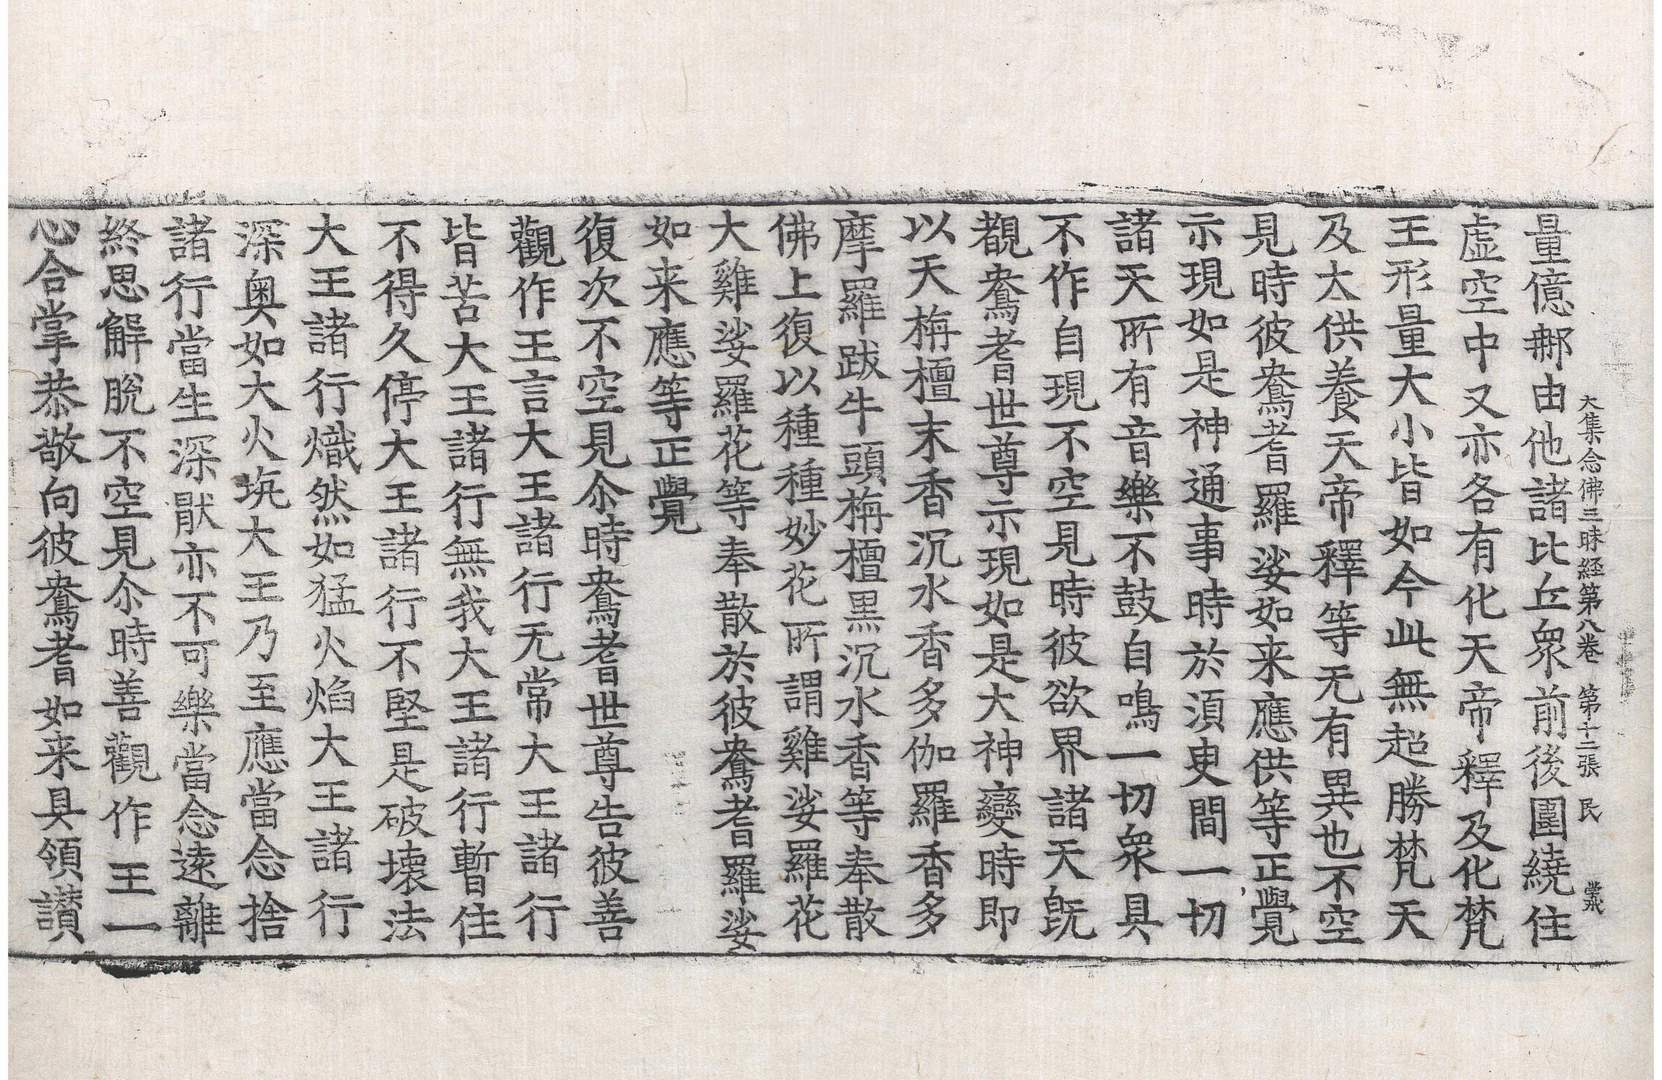 大集念佛三昧経第八卷　第十二張　民
量億那由他諸比丘衆前後圍繞住
虛空中又亦各有化天帝釋及化梵
王形量大小皆如今此無超勝梵天
及大供養天帝釋等无有異也不空
見時彼鴦耆羅娑如来應供等正覺
示現如是神通事時於須臾間一切
諸天所有音樂不鼓自鳴一切衆具
不作自現不空見時彼欲界諸天旣
覩鴦耆世尊示現如是大神變時即
以天栴檀末香沉水香多伽羅香多
摩羅跋牛頭栴檀黒沉水香等奉散
佛上復以種種妙花所謂雞娑羅花
大雞娑羅花等奉散於彼鴦耆羅娑
如来應等正覺
復次不空見尒時鴦耆世尊告彼善
觀作王言大王諸行无常大王諸行
皆苦大王諸行無我大王諸行暫住
不得久停大王諸行不堅是破壊法
大王諸行熾然如猛火焰大王諸行
深奥如大火坑大王乃至應當念捨
諸行當生深猒亦不可樂當念遠離
終思解脫不空見尒時善觀作王一
心合掌恭敬向彼鴦耆如来具領讃